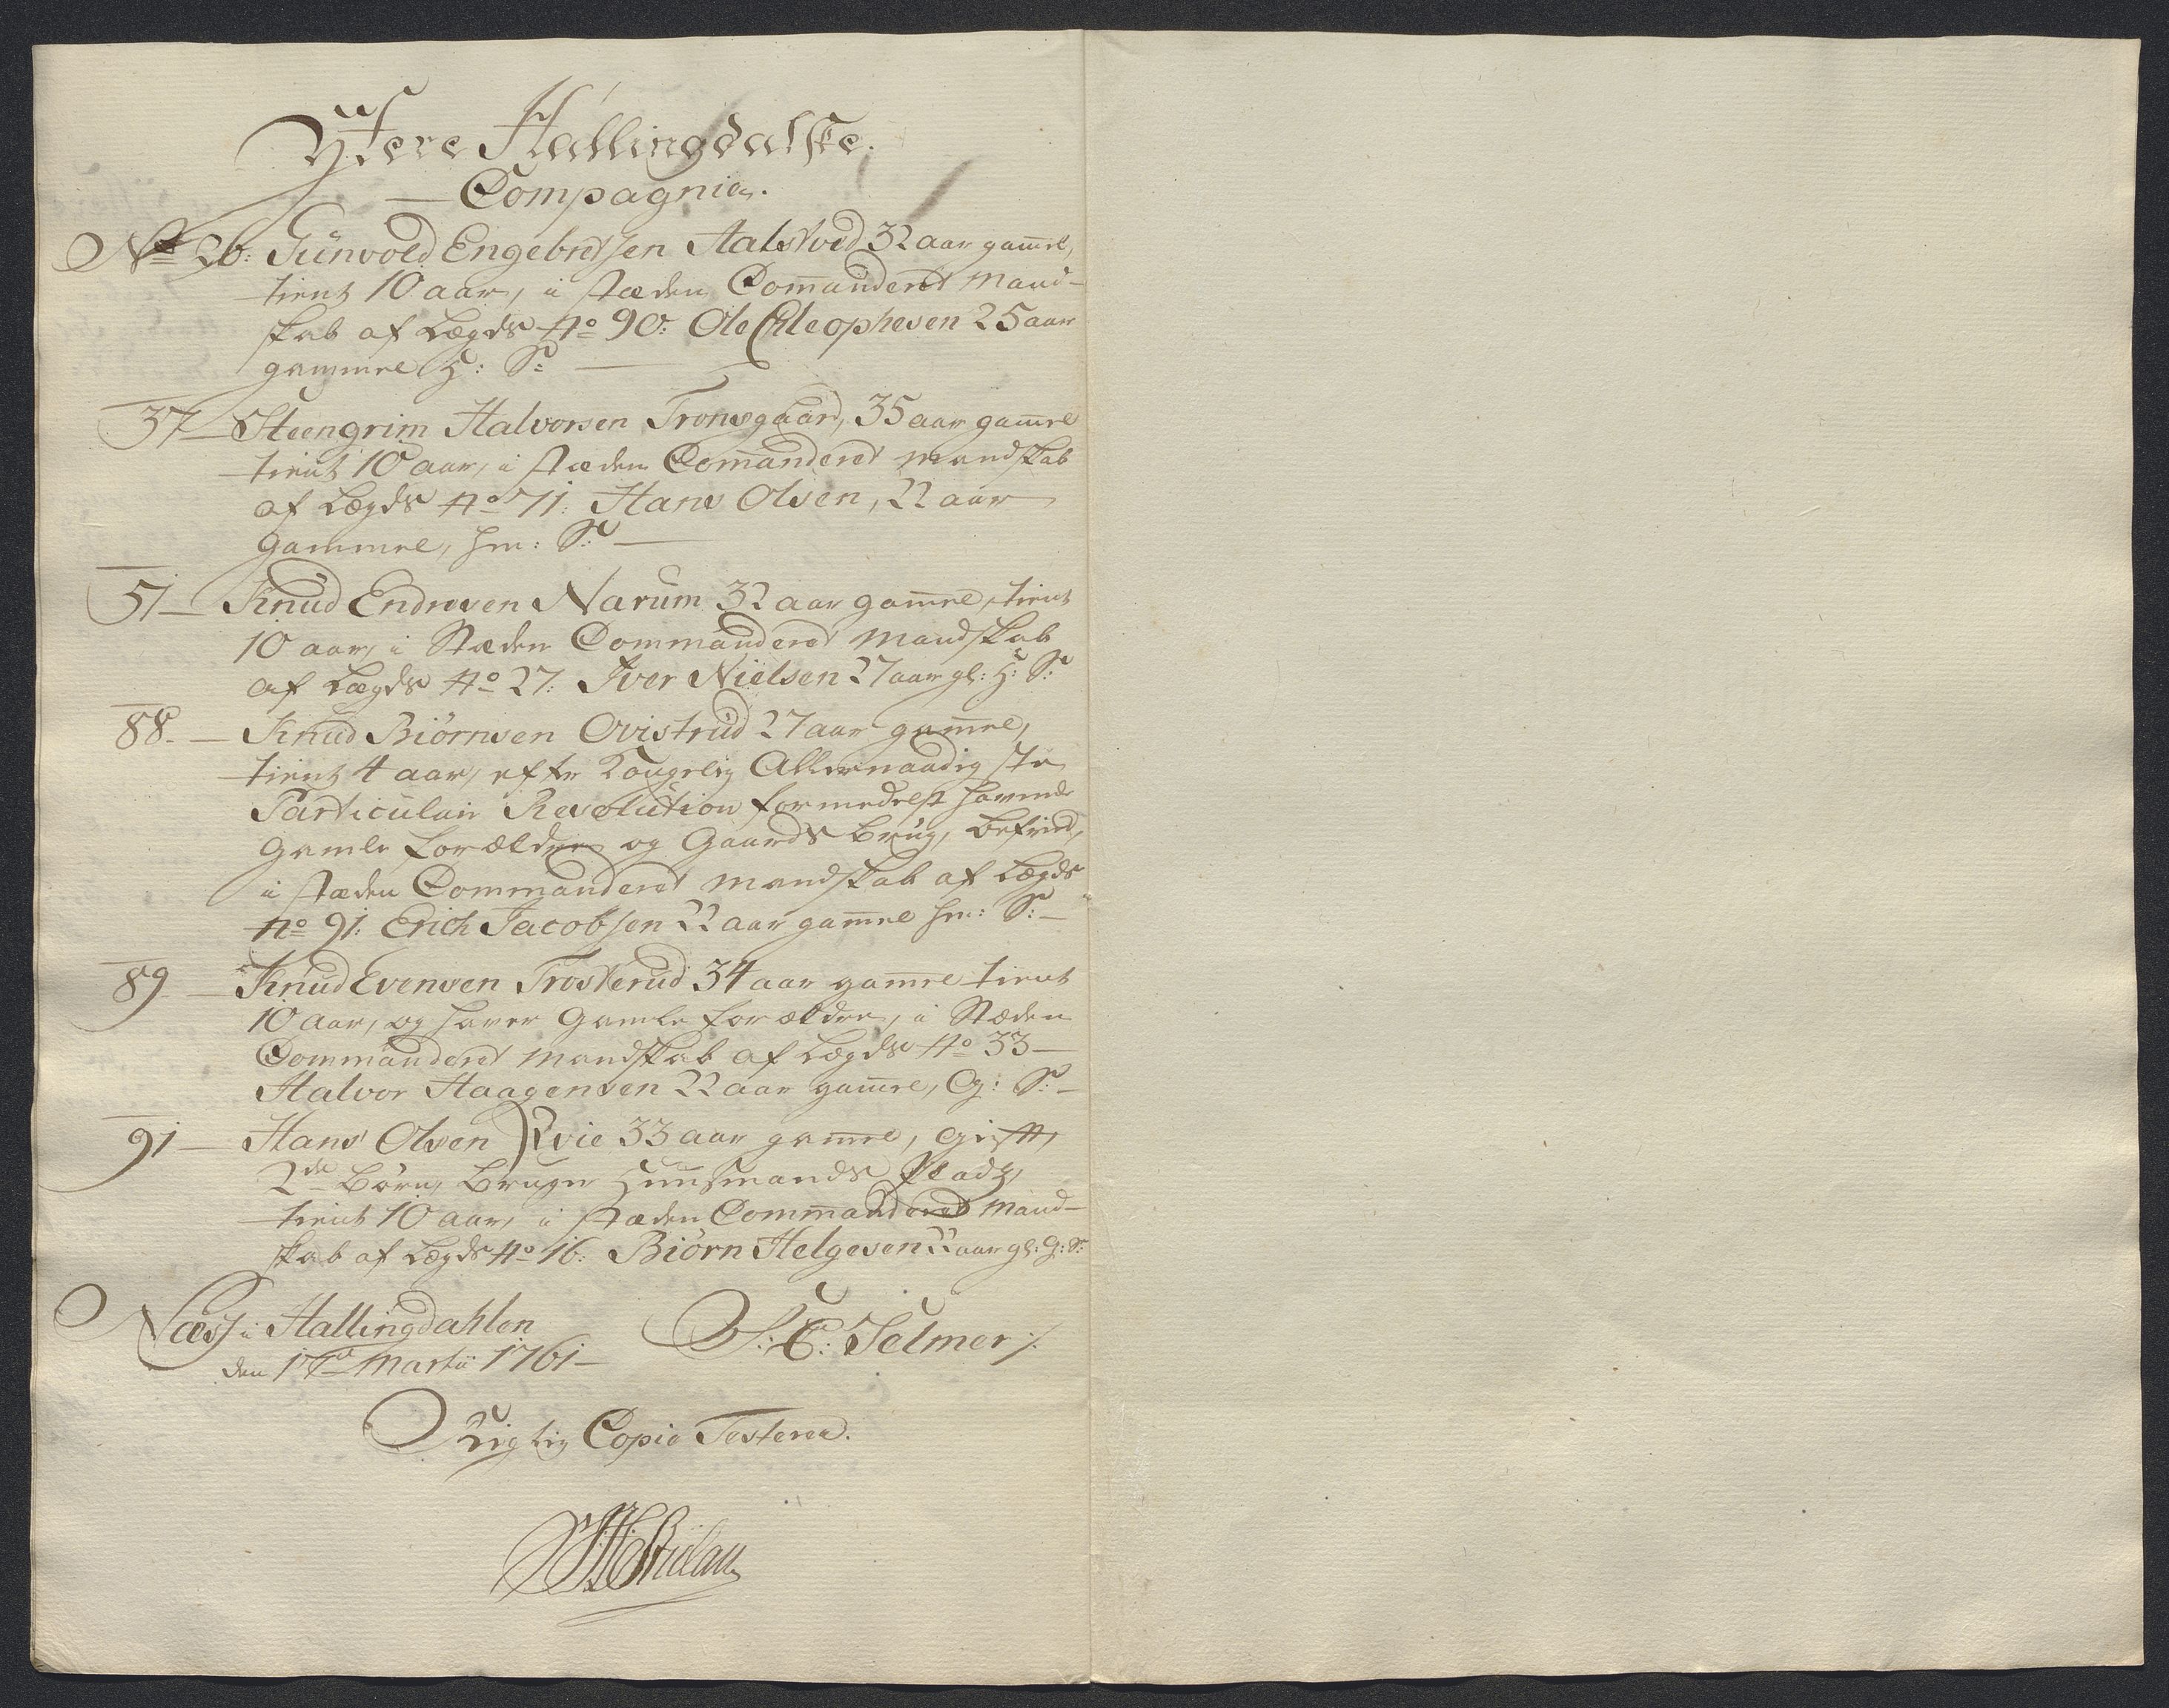 Ÿtere Hallingdalske.
Compagnie.
No 26: Gunvold Engebretsen Aalstved 32 aar gam̅el,
tient 10 aar, i stæden Com̅anderet Mand-
skab af Lægds No 90: Ole Eleophesen 25 aar
gammel H: S:
37 Steengrim Halvorsen Tronsgaard, 35 aar gam̅el
tient 10 aar, i stæden Com̅anderet mandskab
af Lægds No 71: Hans Olsen, 22 aar
Gammel, hm: S:
51 Knud Endresen Narum 32 aar gam̅el, tient
10 aar, i Stæden Commanderet Mandskab
af Lægds No 27: Iver Nielsen 27 aar gl: H: S:
88. Knud Biörnsen Qvistrud 27 aar gam̅el,
tient 4 aar, efter Kongelig Allernaadigste
Particulair Resolution formedelst havende
Gamle forældre og Gaards Brug, befried,
i stæden Commanderet mandskab af Lægds
No 91: Erich Jacobsen 22 aar gam̅el hm: S:
89 Knud Evensen Trosterud 34 aar gam̅el tient
10 aar, og haver Gamle forældre, i Stæden
Commanderet mandskab af Lægds No 33
Halvor Haagensen 22 aar gam̅el, G: S:
91 Hans Olsen Qvie 33 aar gam̅el, gift,
2de Börn, bruger Huusmands Pladz,
tient 10 aar, i stæden Commanderet Mand-
skab af Lægds No 16: Biörn Helgesen 22 aar gl: G: S:
Næss i Hallingdahlen
den 17de Martii 1761
S: C: Selmer /:
Rigtig Copie Testerer.